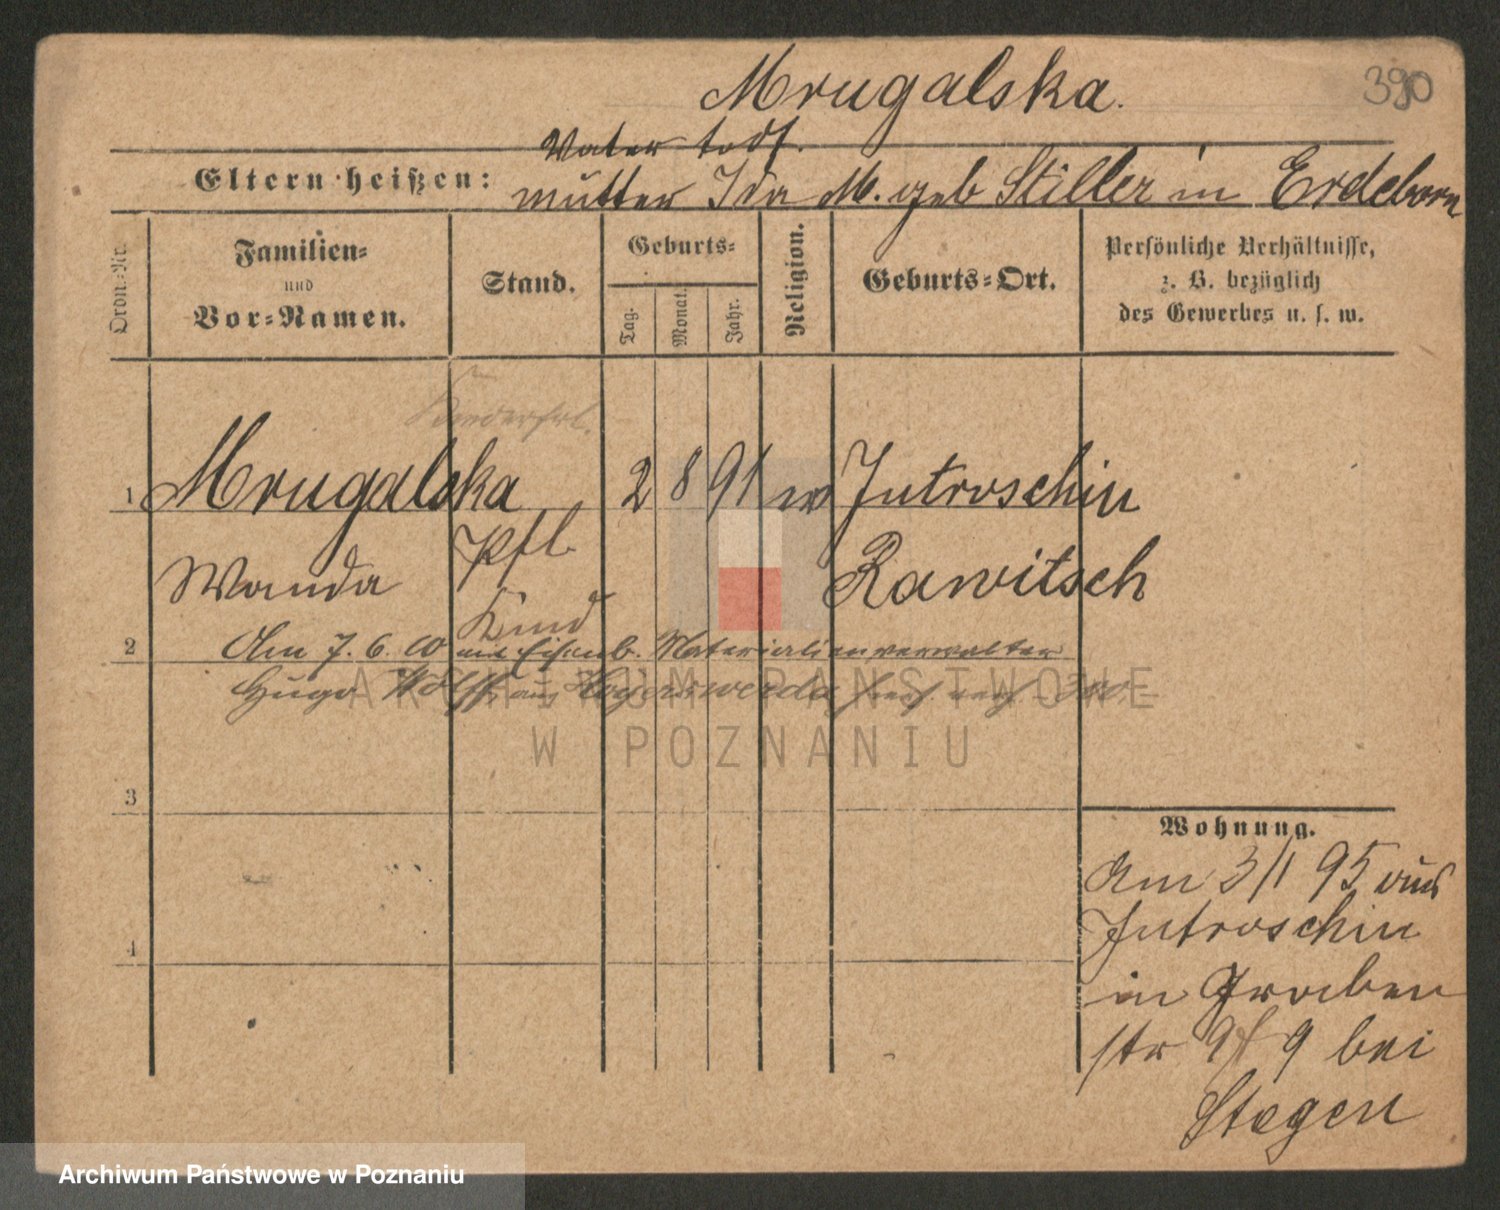 Mrugalska.
390
Vater todt.
Eltern heißen:
mutter Ida M. geb Stiller in Erdeborn
Ordn.-Nr.
Familien-
und
Vor-Namen.
Stand.
Geburts-
Tag.
Monat.
Jahr.
Religion.
Geburts-Ort.
Persönliche Verhältnisse,
z. B. bezüglich
des Gewerbes u. s. w.
Kinderfrl.
1 Mrugalska 2 8 91 Jutroschin
Wanda Pfl Rawitsch
Kind
2 Am 7. 6. Eisenb. Materialienverwalter
Hugo Wolff, aus Hoyerswerda
ARCHIWUM PAŃSTWOWE
W POZNANIU
3
Wohnung.
Am 3/1 95 aus
Jutroschin
4
in Graben
str 9 bei
Stegen
Archiwum Państwowe w Poznaniu